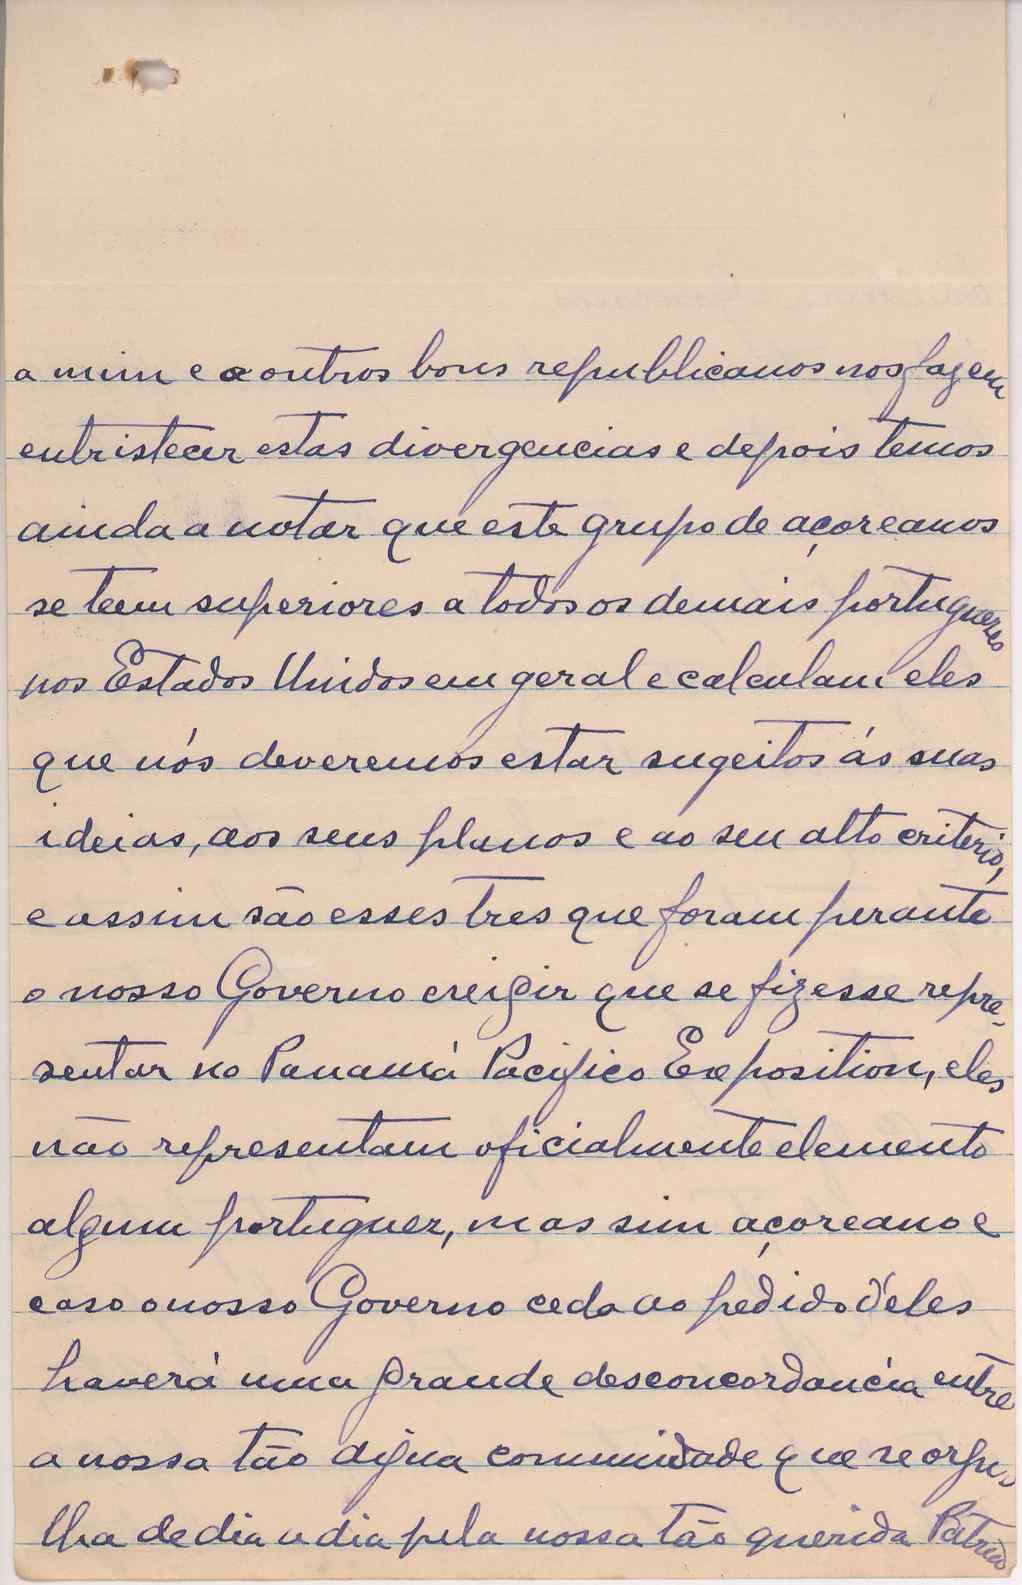 a mim e a outros bons republicanos nos fazem
entristecer estas divergencias e depois temos
ainda a notar que este grupo de açoreanos
se teem superiores a todos os demais portuguezes
nos Estados Unidos em geral e calculam eles
que nós deveremos estar sugeitos ás suas
ideias, aos seus planos e ao seu alto criterio,
e assim são esses tres que foram perante
o nosso Governo exigir que se fizesse repre-
sentar no Panamá Pacifico Exposition, eles
não representam oficialmente elemento
algum portuguez, mas sim açoreano e
caso o nosso Governo ceda ao pedido d'eles
haverá uma grande desconcordancia entre
a nossa tão digna communidade que se orgu-
lha de dia a dia pela nossa tão querida Patria